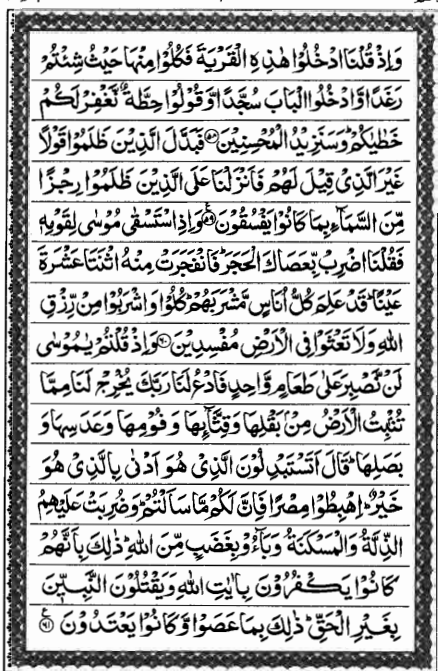 وَاِذْ قُلْنَا ادْخُلُوْا هٰذِهِ الْقَرْيَةَ فَكُلُوْا مِنْهَا حَيْثُ شِئْتُمْ
رَغَدًا وَّادْخُلُوا الْبَابَ سُجَّدًا وَّقُوْلُوْا حِطَّةٌ نَّغْفِرْ لَكُمْ
خَطٰيٰكُمْ ؕ وَسَنَزِيْدُ الْمُحْسِنِيْنَ ﴿۵۸﴾ فَبَدَّلَ الَّذِيْنَ ظَلَمُوْا قَوْلًا
غَيْرَ الَّذِيْ قِيْلَ لَهُمْ فَاَنْزَلْنَا عَلَى الَّذِيْنَ ظَلَمُوْا رِجْزًا
مِّنَ السَّمَآءِ بِمَا كَانُوْا يَفْسُقُوْنَ ﴿۵۹﴾ وَاِذِ اسْتَسْقٰى مُوْسٰى لِقَوْمِهٖ
فَقُلْنَا اضْرِبْ بِّعَصَاكَ الْحَجَرَ ؕ فَانْفَجَرَتْ مِنْهُ اثْنَتَا عَشْرَةَ
عَيْنًا ؕ قَدْ عَلِمَ كُلُّ اُنَاسٍ مَّشْرَبَهُمْ ؕ كُلُوْا وَاشْرَبُوْا مِنْ رِّزْقِ
اللّٰهِ وَلَا تَعْثَوْا فِى الْاَرْضِ مُفْسِدِيْنَ ﴿۶۰﴾ وَاِذْ قُلْتُمْ يٰمُوْسٰى
لَنْ نَّصْبِرَ عَلٰى طَعَامٍ وَّاحِدٍ فَادْعُ لَنَا رَبَّكَ يُخْرِجْ لَنَا مِمَّا
تُنْۢبِتُ الْاَرْضُ مِنْۢ بَقْلِهَا وَقِثَّآئِهَا وَفُوْمِهَا وَعَدَسِهَا وَ
بَصَلِهَا ؕ قَالَ اَتَسْتَبْدِلُوْنَ الَّذِيْ هُوَ اَدْنٰى بِالَّذِيْ هُوَ
خَيْرٌ ؕ اِهْبِطُوْا مِصْرًا فَاِنَّ لَكُمْ مَّا سَاَلْتُمْ ؕ وَضُرِبَتْ عَلَيْهِمُ
الذِّلَّةُ وَالْمَسْكَنَةُ وَبَآءُوْ بِغَضَبٍ مِّنَ اللّٰهِ ؕ ذٰلِكَ بِاَنَّهُمْ
كَانُوْا يَكْفُرُوْنَ بِاٰيٰتِ اللّٰهِ وَيَقْتُلُوْنَ النَّبِيّٖنَ
بِغَيْرِ الْحَقِّ ؕ ذٰلِكَ بِمَا عَصَوْا وَّكَانُوْا يَعْتَدُوْنَ ﴿۶۱﴾